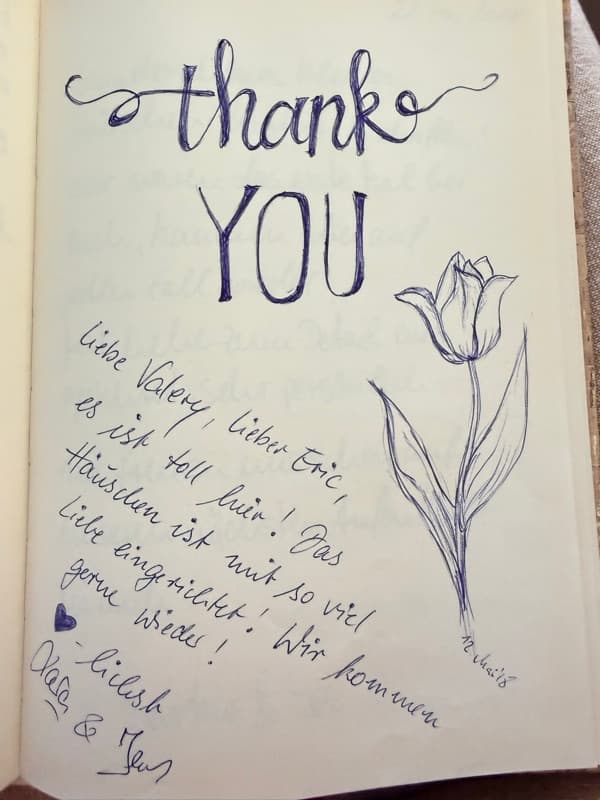 thank
YOU
liebe Valery, lieber Eric,
es ist toll hier! Das
Häuschen ist mit so viel
Liebe eingerichtet! Wir kommen
gerne wieder!
♥-lichst
& Jens